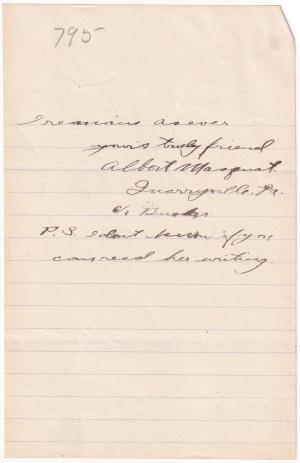 795
I remains as ever
yours truly friend
Albert Masquat.
Quarryville, Pa.
c/o
P.S. I dont know if you
can read her writing.